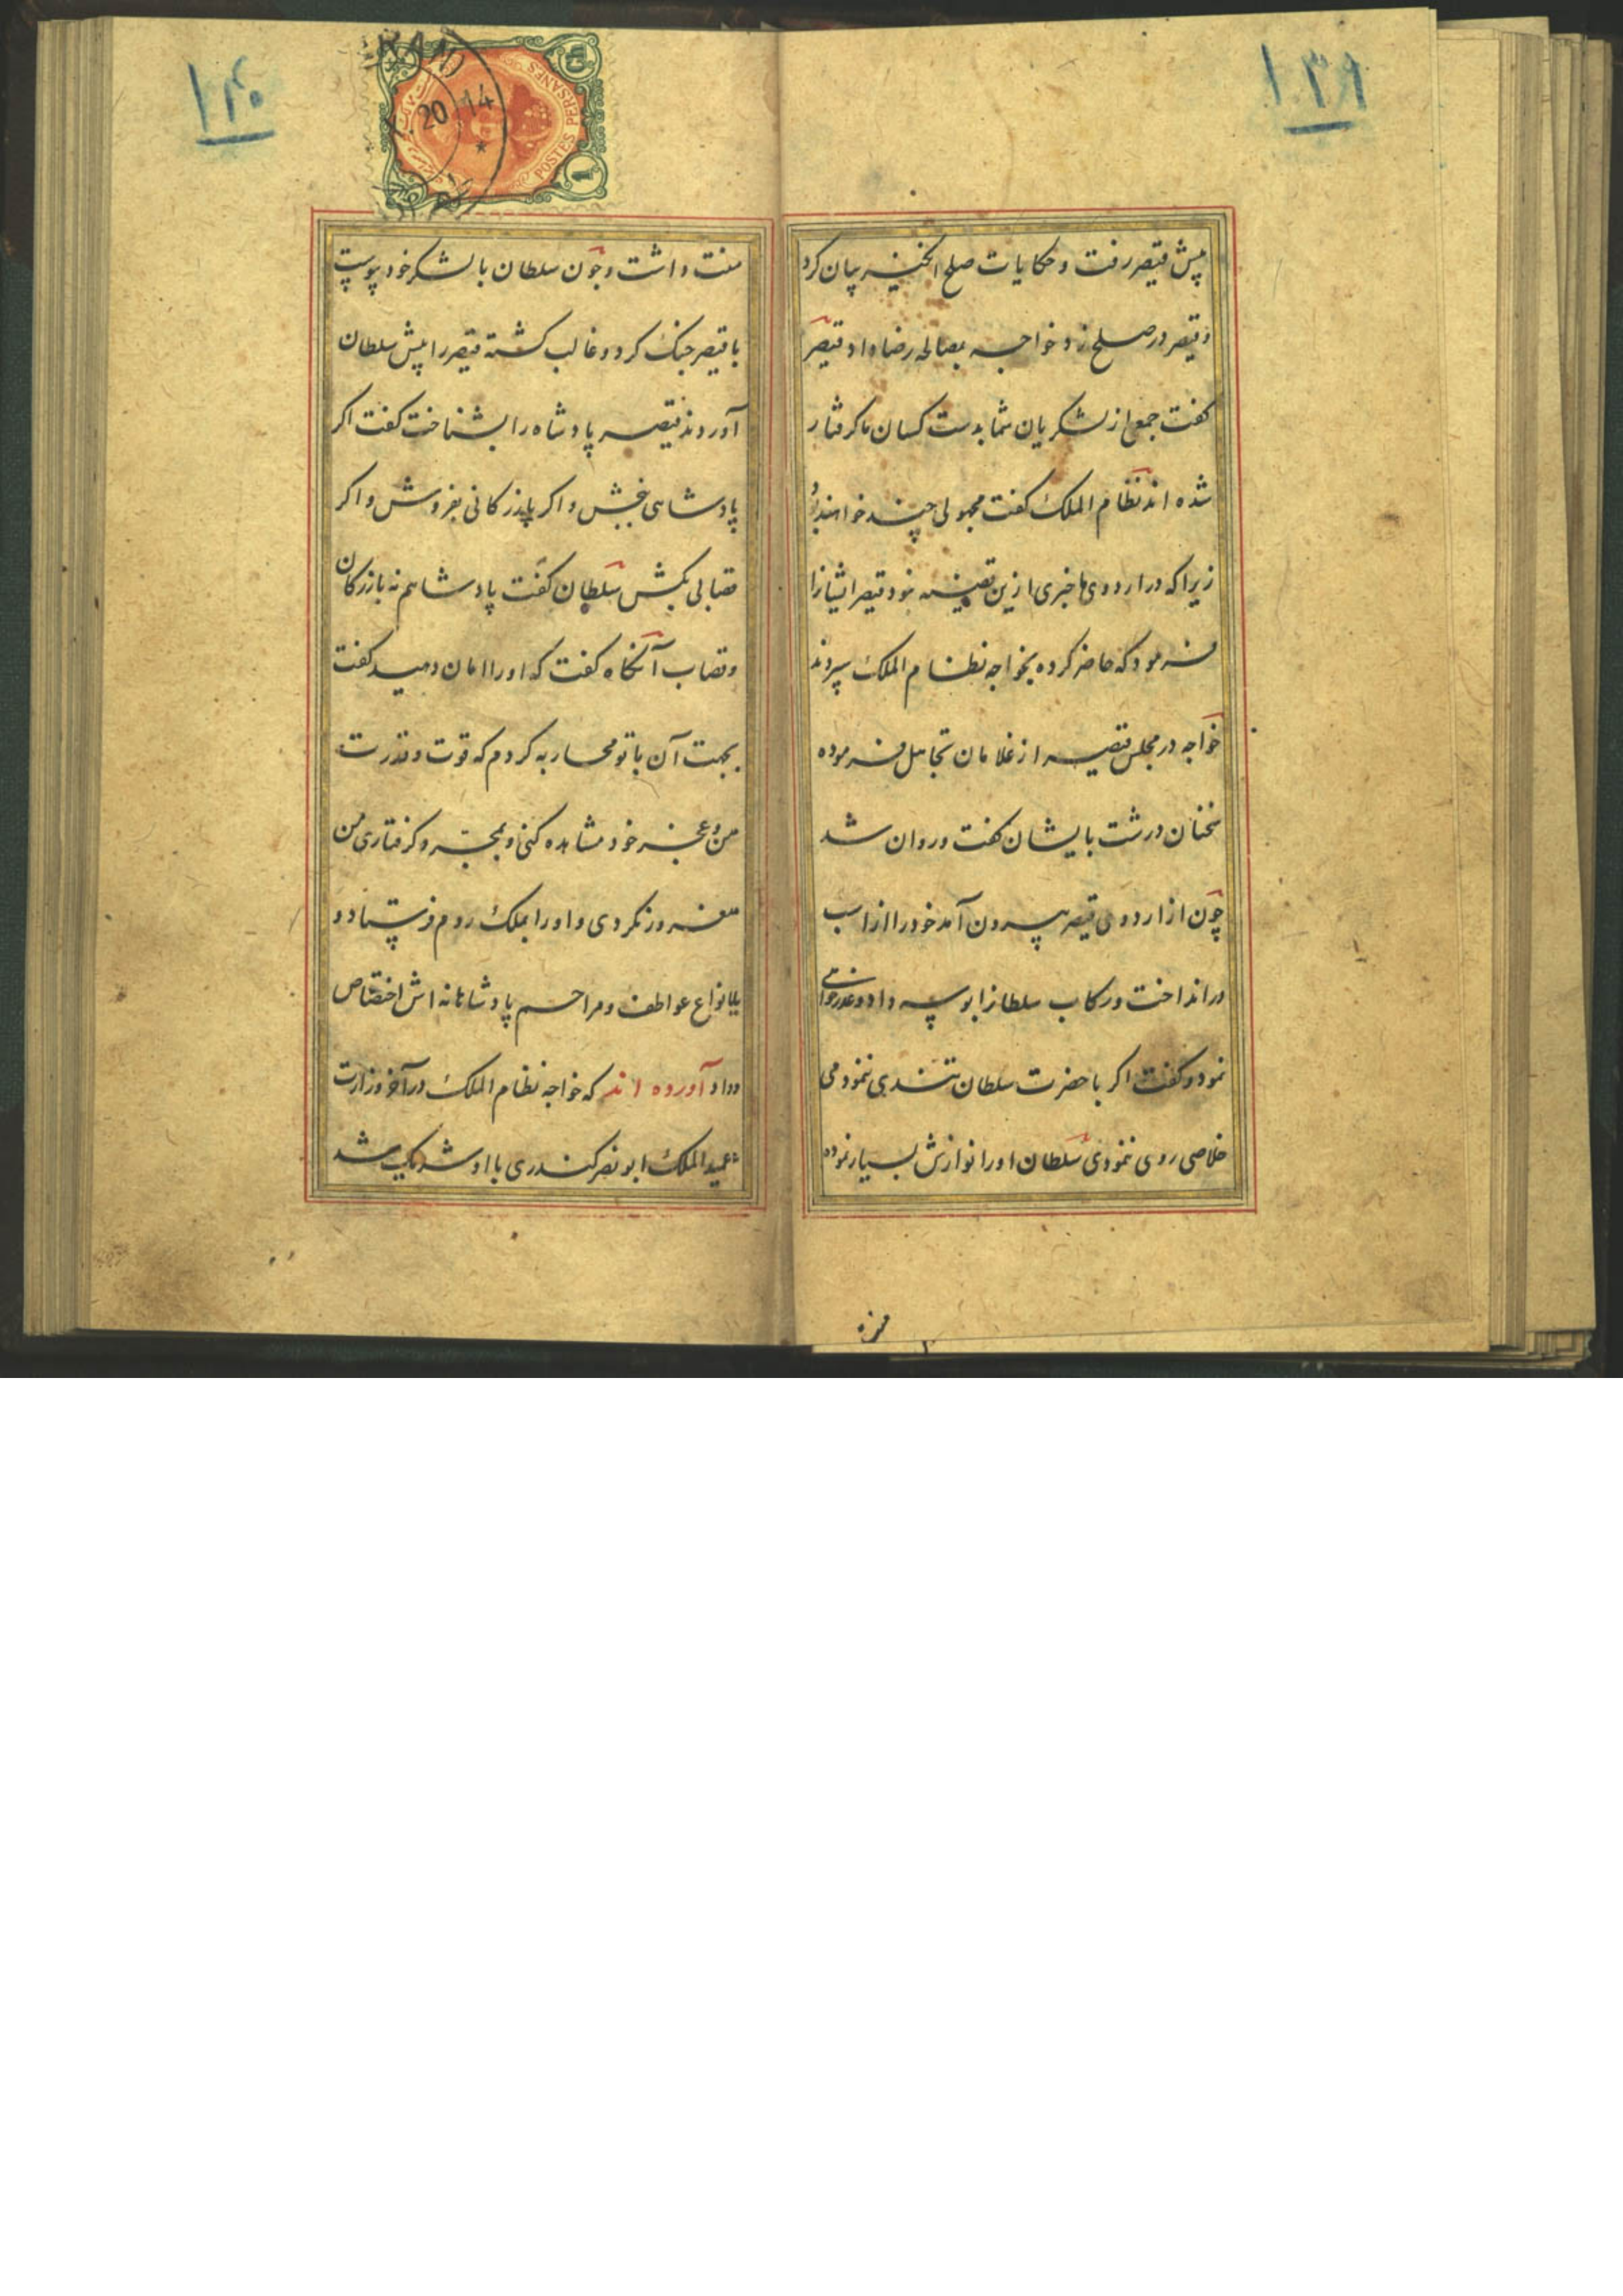 ۱۳۹
پیش قیصر رفت و حکایات صلح انگیز بیان کرد
و قیصر در صلح زد خواجه بمصالحه رضا داد قیصر
کفت جمعی از لشکریان شما بدست کسان ما کرفتار
شده اند نظام الملک کفت مجهولی چند خواهند بود
زیرا که در اردوی ما خبری ازین قضیه نبود قیصر ایشانرا
فرمود که حاضر کرده بخواجه نظام الملک سپردند
خواجه در مجلس قیصر از غلامان تجاهل فرموده
سخنان درشت بایشان کفت و روان شد
چون از اردوی قیصر بیرون آمد خود را از اسب
در انداخت و رکاب سلطانرا بوسه داد و عذرخواهی
نمود و کفت اکر با حضرت سلطان تندی ننمودمی
خلاصی روی ننمودی سلطان او را نوازش بسیار نموده
منت
۱۴۰
POSTES PERSANES
20 14
1
منت داشت و چون سلطان با لشکر خود پیوست
با قیصر جنک کرد و غالب کشته قیصر را پیش سلطان
آوردند قیصر پادشاه را بشناخت کفت اکر
پادشاهی ببخش و اکر بازرکانی بفروش و اکر
قصابی بکش سلطان کفت پادشاهم نه بازرکان
و قصاب آنکاه کفت که او را امان دهید کفت
بجهت آن با تو محاربه کردم که قوت و قدرت
من و عجز خود مشاهده کنی و بمجرد کرفتاری من
مغرور نکردی و او را بملک روم فرستاد و
بانواع عواطف و مراحم پادشاهانه اش اختصاص
داد آورده اند که خواجه نظام الملک در آخر وزارت
عمید الملک ابو نصر کندری با او شریک شد